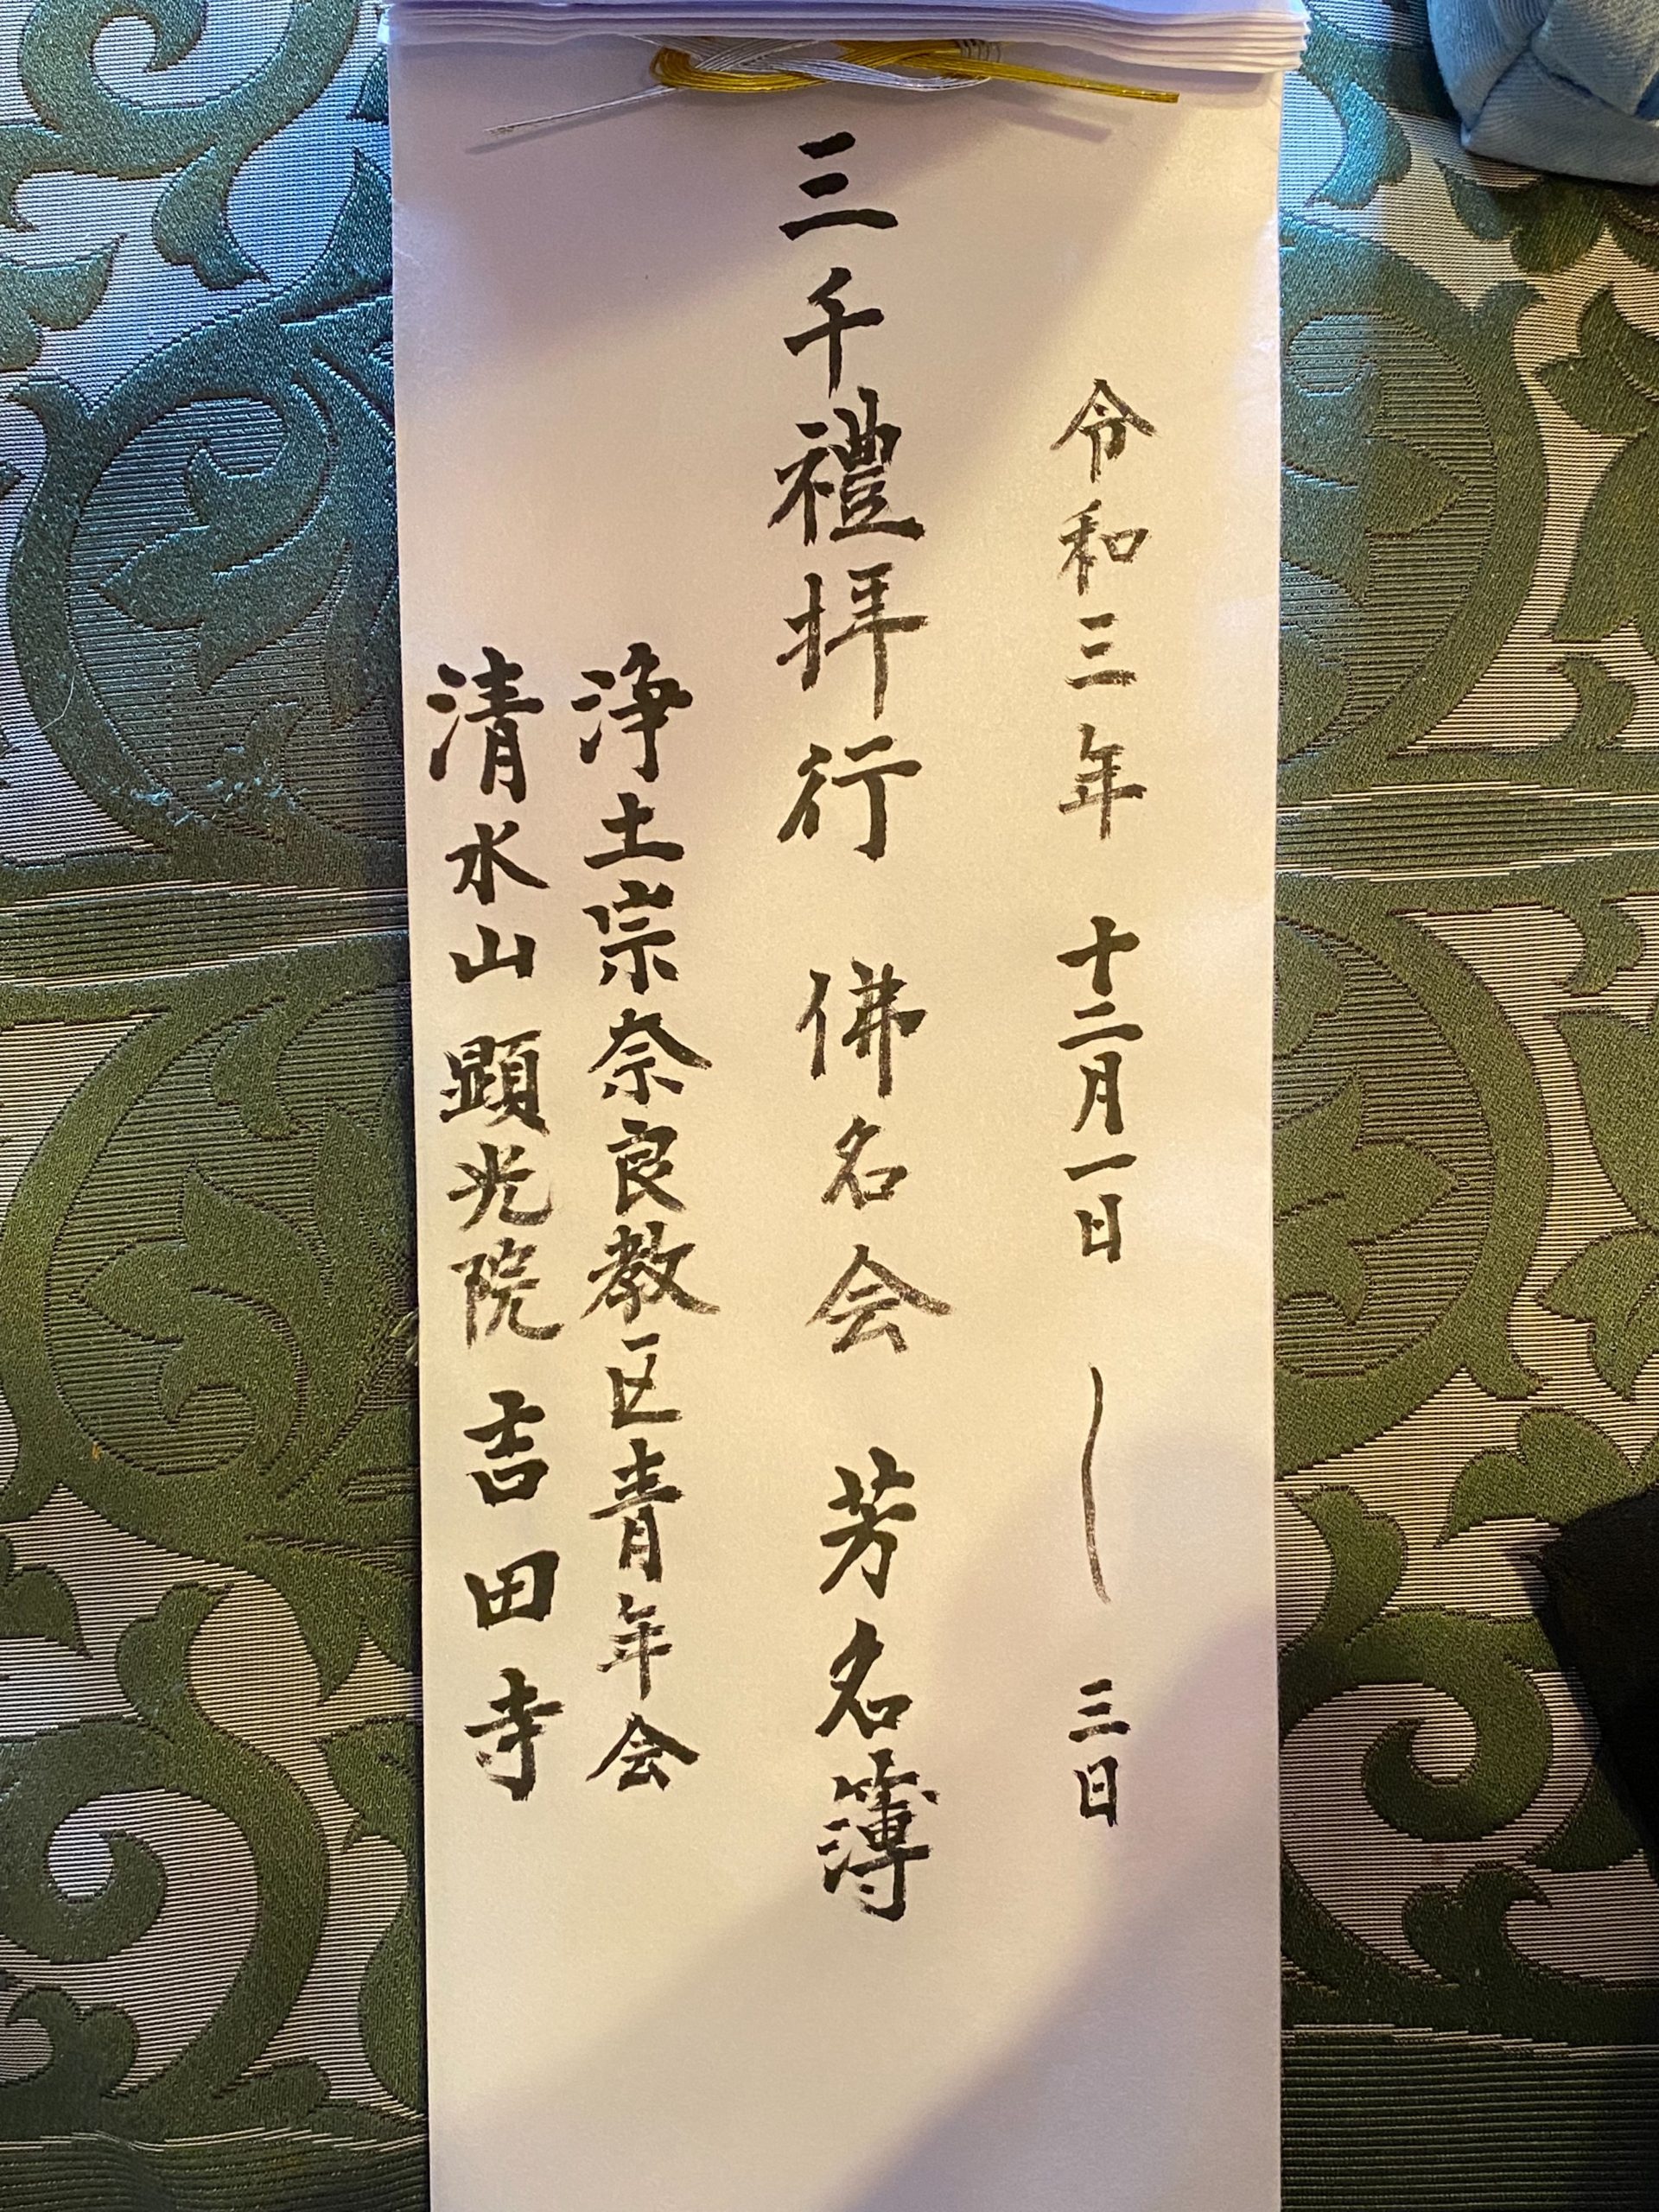 令和三年 十二月一日〜三日
三千禮拝行 佛名会 芳名簿
浄土宗奈良教区青年会
清水山 顕光院 吉田寺